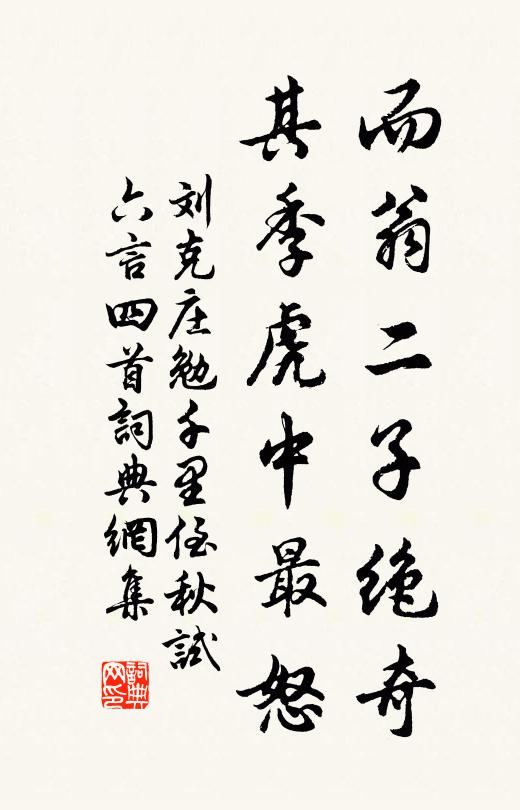 而翁二子绝奇
其季虎中最怒
刘克庄勉千里侄秋試
六言四首詞典網集
詞典网印